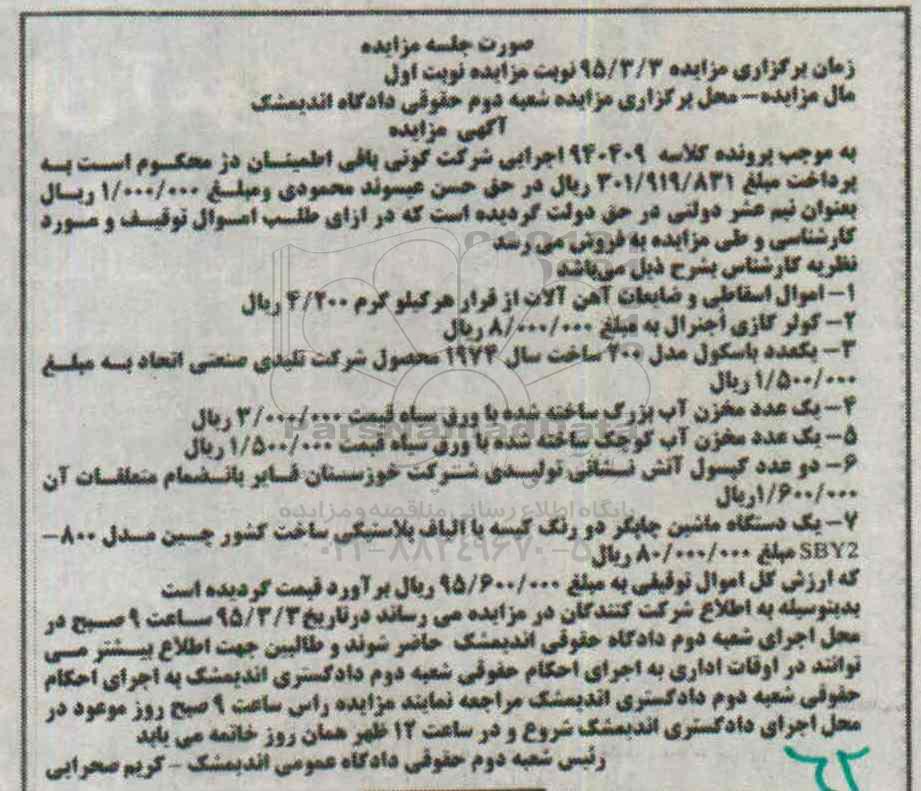 صورت جلسه مزایده
زمان برگزاری مزایده ۹۵/۳/۳ نوبت مزایده نوبت اول
مال مزایده – محل برگزاری مزایده شعبه دوم حقوقی دادگاه اندیمشک
آگهی مزایده
به موجب پرونده کلاسه ۹۴۰۴۰۹ اجرایی شرکت گونی بافی اطمینان دز محکوم است به
پرداخت مبلغ ۳۰۱/۹۱۹/۸۳۱ ریال در حق حسن عیسوند محمودی ومبلغ ۱/۰۰۰/۰۰۰ ریال
بعنوان نیم عشر دولتی در حق دولت گردیده است که در ازای طلب اموال توقیف و مورد
کارشناسی و طی مزایده به فروش می رسد
نظریه کارشناس بشرح ذیل می‌باشد
۱– اموال اسقاطی و ضایعات آهن آلات از قرار هر کیلو گرم ۴/۲۰۰ ریال
۲– کولر گازی اجنرال به مبلغ ۸/۰۰۰/۰۰۰ ریال
۳– یکعدد باسکول مدل ۲۰۰ ساخت سال ۱۹۷۴ محصول شرکت تلیدی صنعتی اتحاد به مبلغ
۱/۵۰۰/۰۰۰ ریال
۴– یک عدد مخزن آب بزرگ ساخته شده با ورق سیاه قیمت ۳/۰۰۰/۰۰۰ ریال
۵– یک عدد مخزن آب کوچک ساخته شده با ورق سیاه قیمت ۱/۵۰۰/۰۰۰ ریال
ParsNamadData
۶– دو عدد کپسول آتش نشانی تولیدی شرکت خوزستان فایر بانضمام متعلقات آن
۱/۶۰۰/۰۰۰ریال
پایگاه اطلاع رسانی مناقصه و مزایده
۷– یک دستگاه ماشین چاپگر دو رنگ کیسه با الیاف پلاستیکی ساخت کشور چین مدل ۸۰۰–
SBY2 مبلغ ۸۰/۰۰۰/۰۰۰ ریال
۰۲۱–۸۸۳۴۹۶۷۰–۵
که ارزش کل اموال توقیفی به مبلغ ۹۵/۶۰۰/۰۰۰ ریال برآورد قیمت گردیده است
بدینوسیله به اطلاع شرکت کنندگان در مزایده می رساند درتاریخ ۹۵/۳/۳ ساعت ۹ صبح در
محل اجرای شعبه دوم دادگاه حقوقی اندیمشک حاضر شوند و طالبین جهت اطلاع بیشتر می
توانند در اوقات اداری به اجرای احکام حقوقی شعبه دوم دادگستری اندیمشک به اجرای احکام
حقوقی شعبه دوم دادگستری اندیمشک مراجعه نمایند مزایده راس ساعت ۹ صبح روز موعود در
محل اجرای دادگستری اندیمشک شروع و در ساعت ۱۲ ظهر همان روز خاتمه می یابد
رئیس شعبه دوم حقوقی دادگاه عمومی اندیمشک – کریم صحرایی